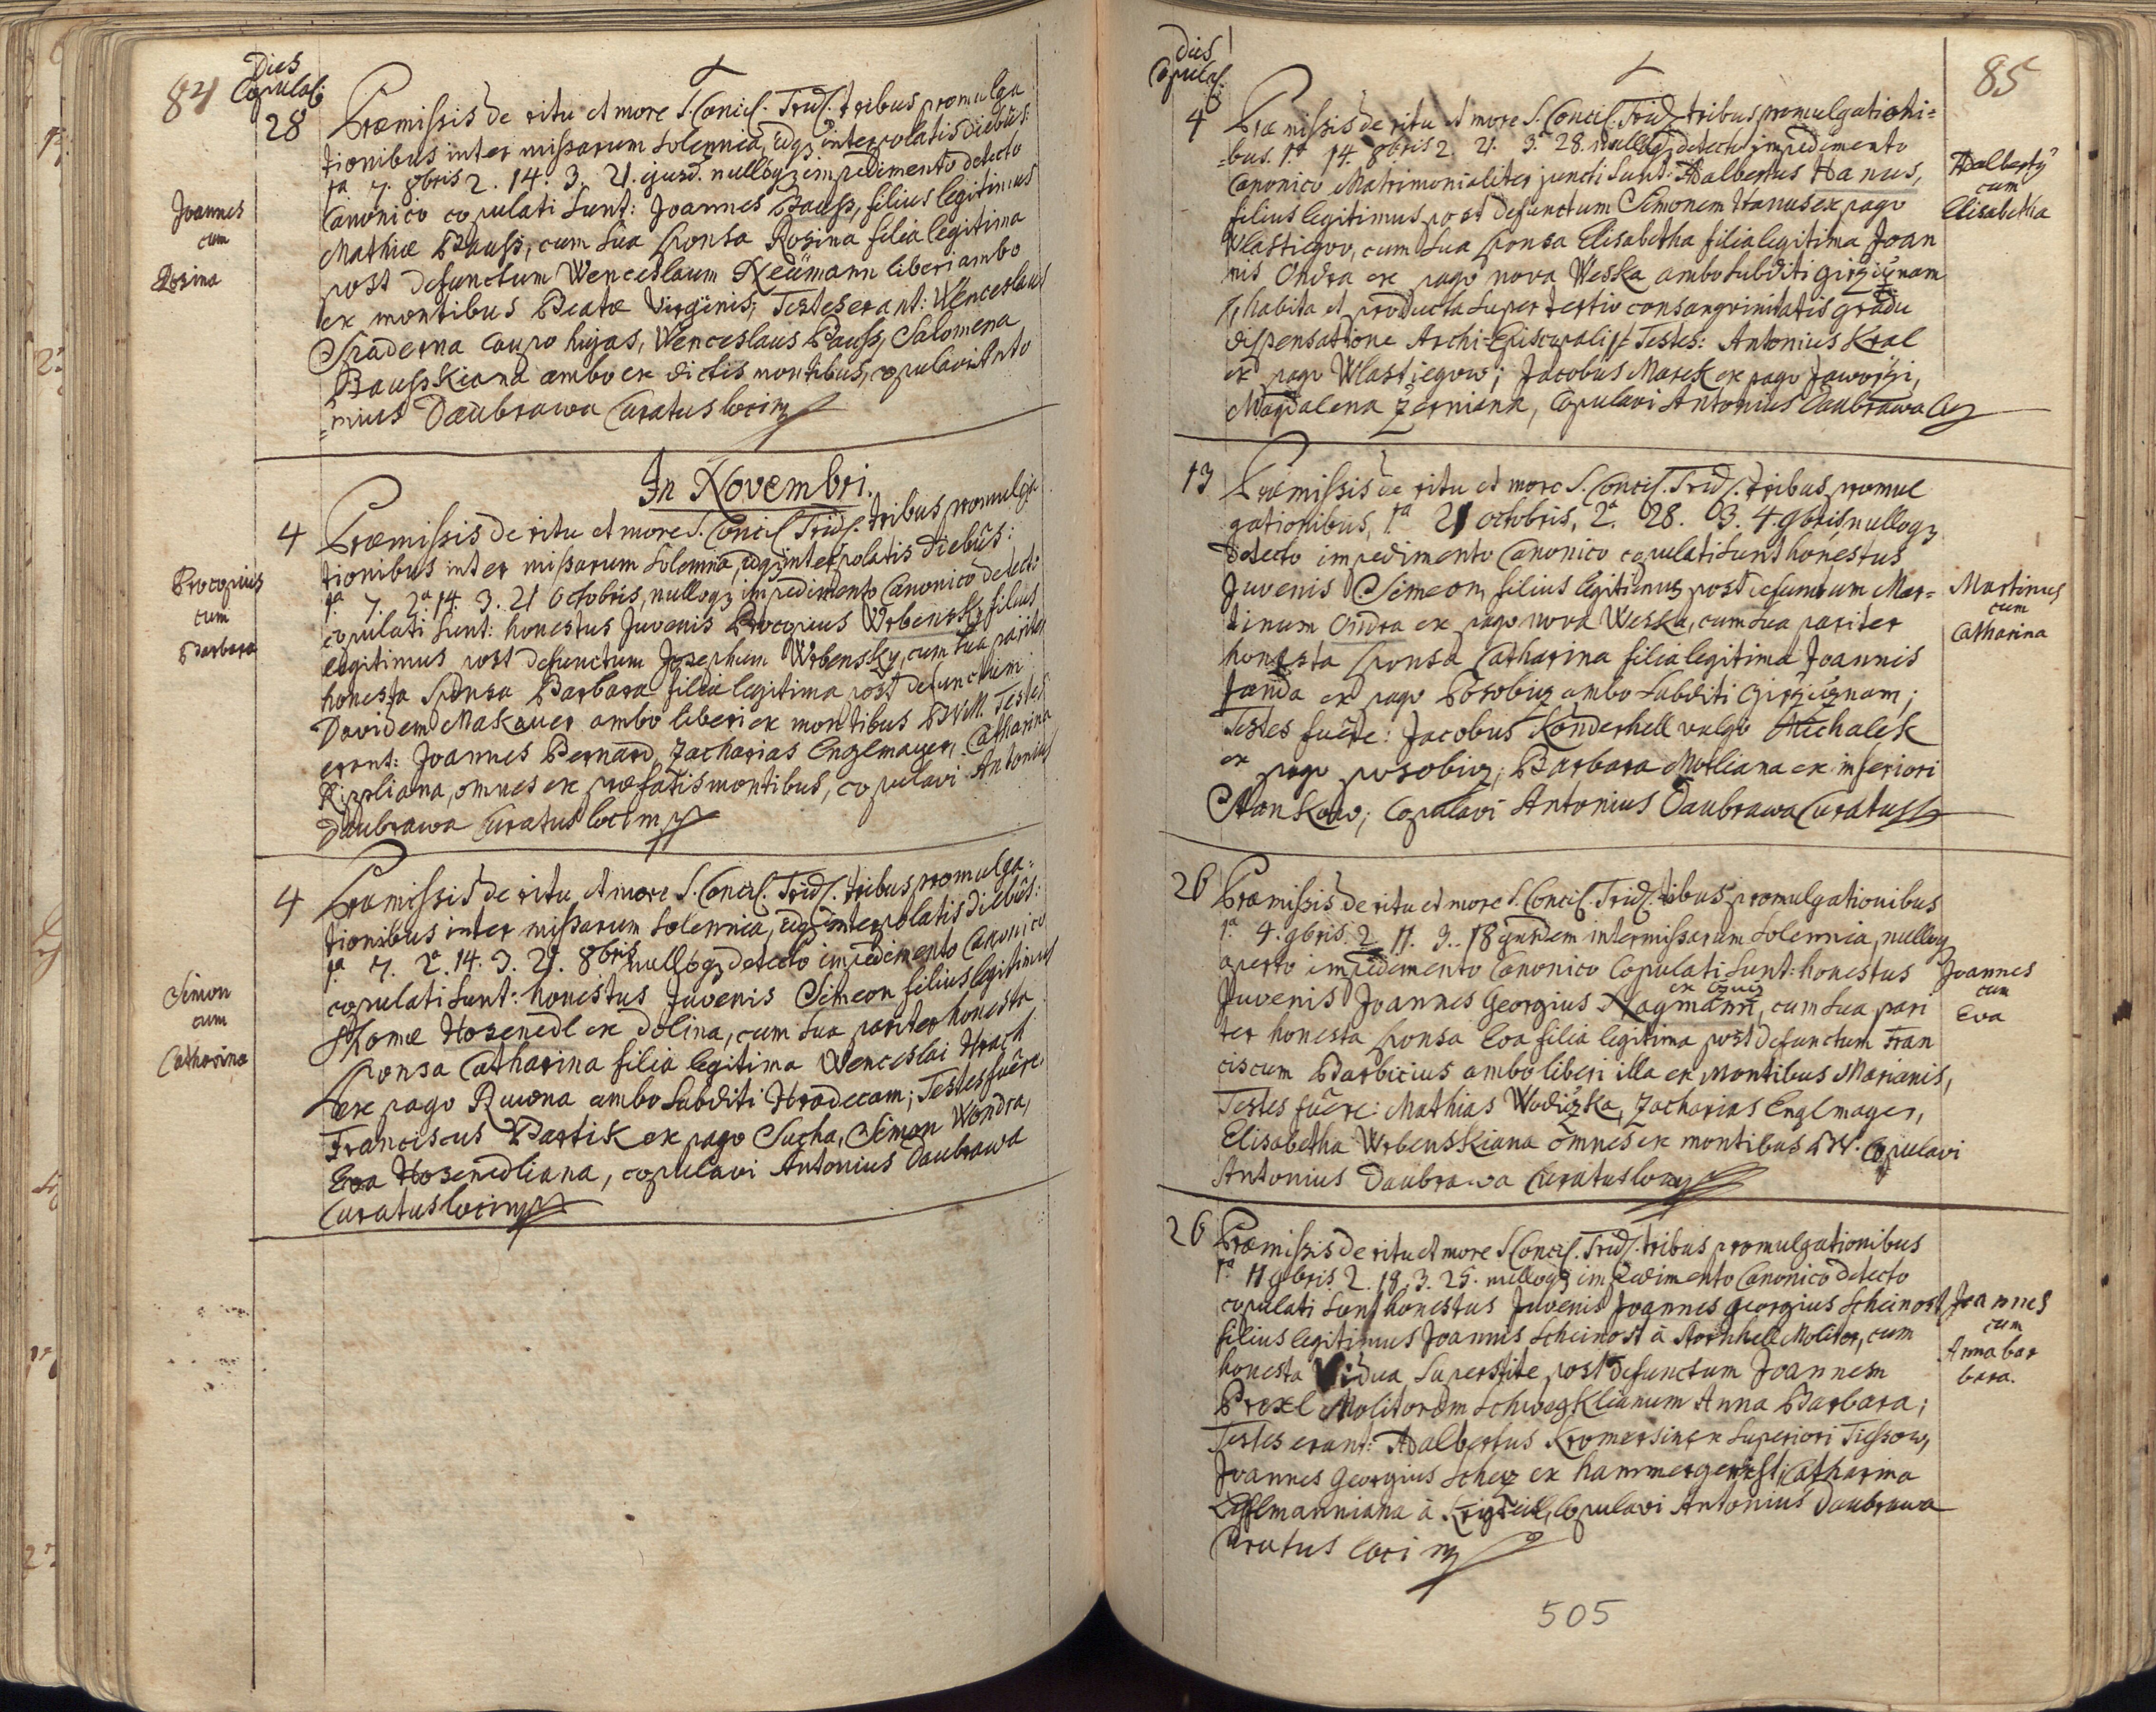 84
Dies
Copulaõ:
28
Joannes
cum
Rosina
Præmissis de ritu et more S. Concil. Trid. tribus promulga
tionibus inter missarum Solennia, idq3 interpolatis diebus:
1a 7. 8bris 2. 14. 3. 21. ejusd. nulloq3 impedimento detecto
Canonico copulati sunt: Joannes Pauss, filius legitimus
Mathiæ Pauss, cum sua sponsa Rosina filia legitima
post defunctum Wenceslaum Neümann liberi ambo
ex montibus Beatæ Virginis; Testes erant: Wenceslaus
Spaderna Caupo hujas, Wenceslaus Pauss, Salomena
Pausskiana ambo ex dictis montibus, copulavi Anto
=nius Daubrawa Curatus loci
In Novembri.
4
Procopius
cum
Barbara
Præmissis de ritu et more S. Concil Trid. tribus promulga
tionibus inter missarum Solennia, idq3 interpolatis diebus:
1a 7. 2a 14. 3. 21 Octobris, nulloq3 impedimento Canonico detecto
copulati sunt: honestus Juvenis Procopius Wrbensky filius
legitimus post defunctum Josephum Wrbensky, cum sua pariter
honesta Sponsa Barbara filia legitima post defunctum
Davidem Makauer ambo liberi ex montibus B.V.M. Testes
erant: Joannes Bernard, Zacharias Englmayer, Catharina
Ripliana, omnes ex præfatis montibus, copulavi Antonius
Daubrawa Curatus loci
4
Simon
cum
Catharina
Præmissis de ritu et more S. Concil. Trid. tribus promulga=
tionibus inter missarum Solennia, idq3 interpolatis diebus:
1a 7. 2a 14. 3. 21. 8bris nulloq3 detecto impedimento Canonico
copulati sunt: honestus Juvenis Simeon filius legitimus
Thomæ Hosenedl ex Dolina, cum sua pariter honesta
sponsa Catharina filia legitima Wenceslai Hrach
ex pago Ruwna ambo subditi Hradecam; Testes fuêre
Franciscus Partik ex pago Sucha, Simon Wondra,
Eva Hosenedliana, copulavi Antonius Daubrawa
Curatus loci
Dies
Copulaõ:
85
4
Præmissis de ritu et more S. Concil. Trid tribus promulgationi=
=bus. 1a 14. 8bris 2. 21. 3. 28. nulloq3 detecto impedimento
Canonico Matrimonialiter juncti sunt: Adalbertus Hanus,
filius legitimus post defunctum Simonem Hanus ex pago
Wlastiegow, cum sua sponsa Elisabetha filia legitima Joan
nis Ondra ex pago nova Weska ambo subditi
Habita et producta super tertio consangvinitatis gradu
dispensatione Archi-Episcopali Testes: Antonius Kral
ex pago Wlastiegow; Jacobus Marek ex pago
Magdalena Zerniana, Copulavi Antonius Daubrawa
Adalbertq
cum
Elisabetha
13
Præmissis de ritu et more S. Concil. Trid. tribus promul
gationibus, 1a 21 octobris, 2a 28. 3. 4. 9bris, nulloq3
detecto impedimento Canonico copulati sunt honestus
Juvenis Simeon, filius legitimus post defunctum Mar=
tinum Ondra ex pago nova Weska, cum sua pariter
honesta sponsa Catharina filia legitima Joannis
Janda ex pago Posobiz ambo subditi
Testes fuêre: Jacobus Konderhell vulgo Michalek
ex pago posobiz; Barbara Motliana ex inferiori
Stankow; Copulavi Antonius Daubrawa Curatus
Martinus
cum
Catharina
26
Præmissis de ritu et more S. Concil. Trid. tribus promulgationibus
1a 4. 9bris. 2. 11. 3. 18 ejusdem inter missarum Solennia, nulloq3
aperto impedimento Canonico Copulati sunt: honestus
Juvenis Joannes Georgius Nagmann, cum sua pari
ter honesta sponsa Eva filia legitima post defunctum Fran
ciscum Barbicius ambo liberi illa ex Montibus Marianis,
Testes fuêre: Mathias Wodiczka, Zacharias Englmayer,
Elisabetha Wrbenskiana omnes ex montibus B.V. Copulavi
Antonius Daubrawa Curatus loci
Joannes
cum
Eva
26
Præmissis de ritu et more S Concil. Trid. tribus promulgationibus
1a 11 9bris. 2. 18. 3. 25. nulloq3 impedimento Canonico detecto
copulati sunt honestus Juvenis Joannes Georgius Scheinost
filius legitimus Joannis Scheinost à Molitor, cum
honesta Vidua superstite post defunctum Joannem
Prexl Molitorem Anna Barbara;
Testes erant: Adalbertus ex superiori
Joannes Georgius ex Catharina
à Copulavi Antonius Daubrawa
Curatus loci
Joannes
cum
Anna bar
bara.
505